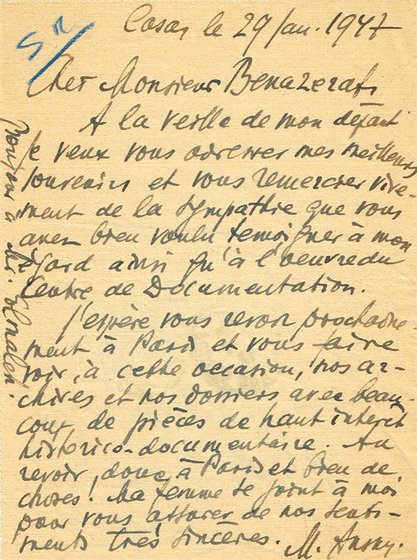 Casa, le 29 Jan. 1947
Cher Monsieur Benazeraf,
A la veille de mon départ
je veux vous adresser mes meilleurs
souvenirs et vous remercier vive
ment de la sympathie que vous
avez bien voulu témoigner à mon
égard ainsi qu'à l'oeuvre du
Centre de Documentation.
J'espère vous revoir prochaine
ment à Paris et vous faire
voir, à cette occasion, nos ar-
chives et nos dossiers avec beau-
coup de pièces de haut intérêt
historico-documentaire. Au
revoir, donc, à Paris et bien de
choses. Ma femme se joint à moi
pour vous assurer de nos senti-
ments très sincères.
Bonjour à Mr.